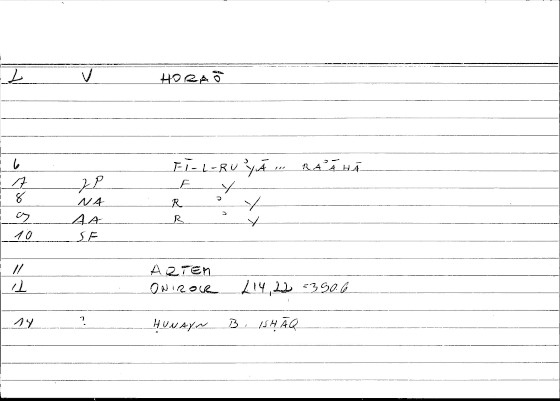 L V HORAŌ
6 FĪ-L-RUʾYĀ ... RAʾĀHĀ
7 JP F Y
8 NA R ʾ Y
9 AA R ʾ Y
10 SF
11 ARTEM
12 ONIROCR 214,22 =3906
14 ? ḤUNAYN B. ISḤĀQ